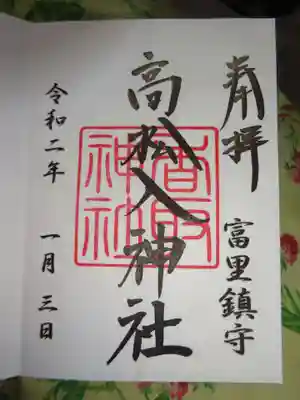 奉拝
富里鎮守
高松入神社
香取神社
令和二年
一月三日